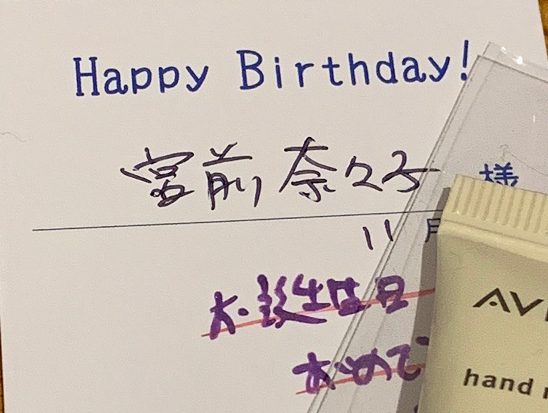 Happy Birthday!
宮前 奈々子 様
11月
お誕生日
おめで
AV
hand